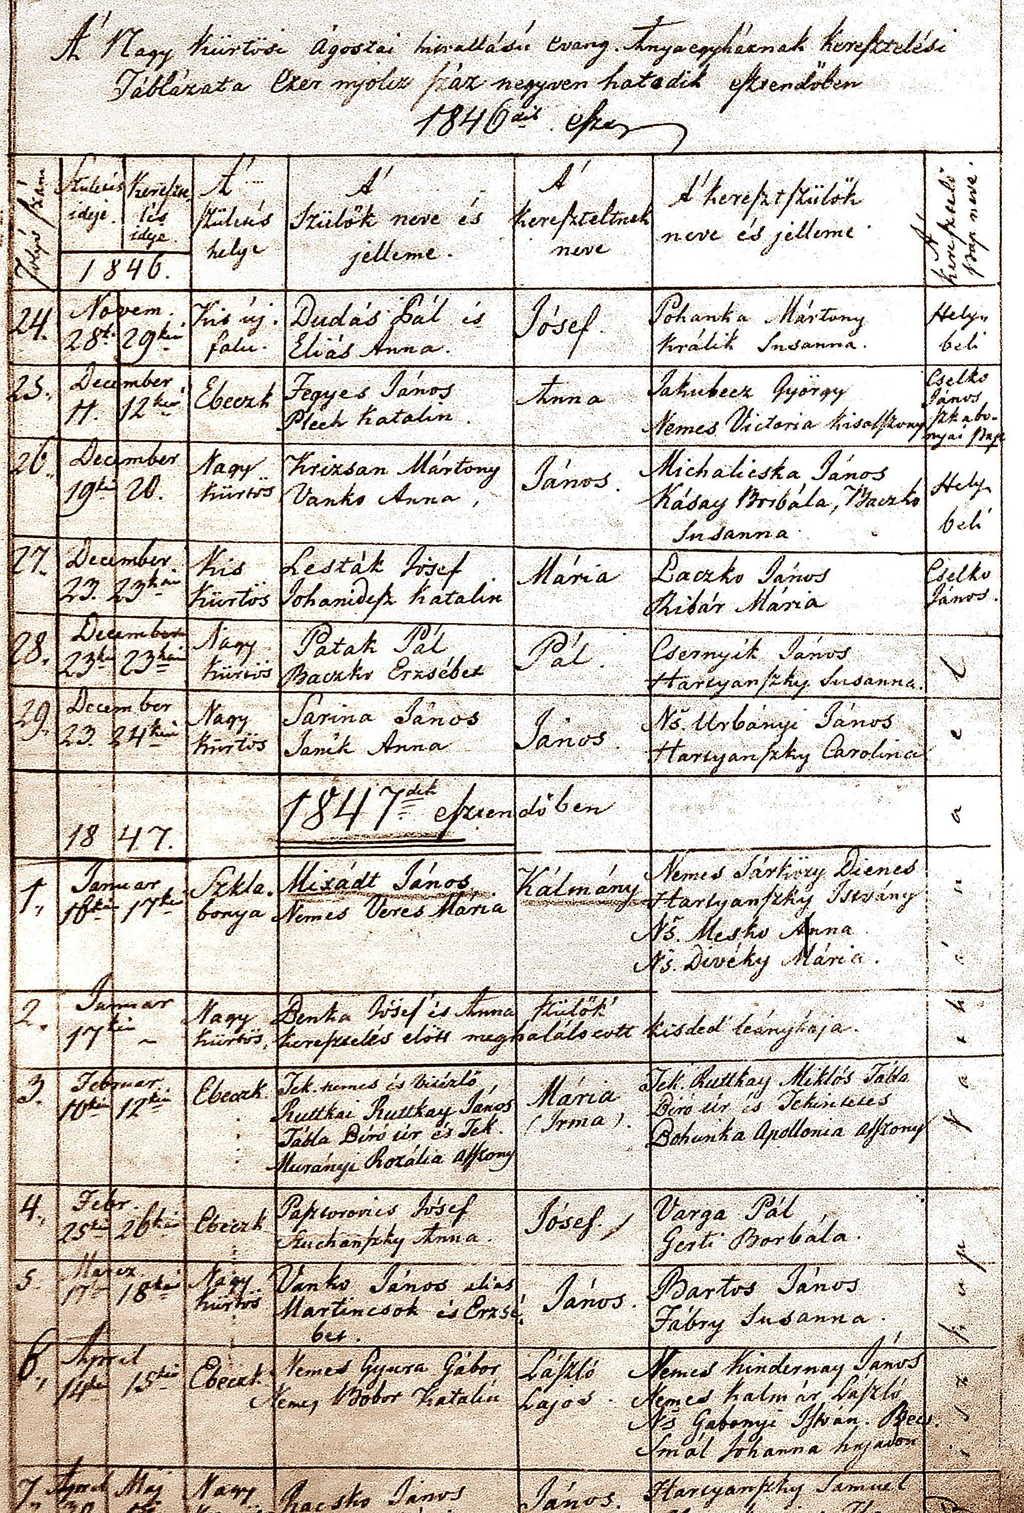 A' Nagy Kürtösi ágostai hitvallású evang. Anyaegyháznak keresztelési
Táblázata Ezer nyolcz száz negyven hatodik esztendőben
1846dik esz
folyó szám
Születés ideje.
Keresztelés idje.
1846.
A' születés helye
A' Szülők neve és jelleme.
A' kereszteltnek neve
A' keresztszülők neve és jelleme
A' keresztelő Pap neve
24.
Novem.
28k. 29kéi
Kis új. falu.
Dudás Pál és
Eliás Anna.
Jósef.
Pohanka Mártony
Králik Susanna.
Hely
beli
25.
December
11. 12kéi
Ebeczk
Fegyes János
Plech Katalin
Anna
Jakubecz György
Nemes Victoria kisasszony
Cselko
János
szklabo-
nyai Pap
26
December
19kéi 20.
Nagy
Kürtös
Krizsan Mártony
Vanko Anna,
János.
Michalicska János
Kásay Borbála, Baczko
Susanna
Hely
beli
27.
December.
23. 23kéi
Kis
Kürtös
Lesták Jósef
Johanidesz Katalin
Mária
Laczko János
Ribár Mária
Cselko
János.
28.
December
23kéi 23kéi
Nagy
Kürtös
Patak Pál
Baczko Erzsébet
Pál.
Csernyik János
Harsyanszky Susanna.
29.
December
23. 24kéi
Nagy
Kürtös
Sarina János
Janik Anna
János.
Nš. Urbányi János
Harsyanszky Carolina
1847.
1847dik esztendőben
1.,
Januar
16kéi 17kéi
Szkla.
bonya
Mixádt János
Nemes Veres Mária
Kálmány
Nemes Sárközy Dienes
Harsyanszky István
Nš. Mesko Anna
Nš. Divéky Mária.
2.
Januar
17kéi ~
Nagy
Kürtös,
Benka Jósef és Anna Szülők'
keresztelés előtt meghalálozott kisded leánykája.
3.
Februar.
10kéi 12kéi
Ebeczk.
Tek. nemes és vitézlő
Ruttkai Ruttkay János
Tábla Biró úr és Tek.
Murányi Rozália asszony
Mária
(Irma).
Tek. Ruttkay Miklós Tábla
Biró úr és Tekintetes
Bohunka Apollonia asszony
4.,
Febr.
25kéi 26kéi
Ebeczk
Pasztorovics Jósef
Suchánszky Anna.
Jósef.
Varga Pál
Gerti Borbála.
5
Marcz.
17 18kéi
Nagy
Kürtös
Vanko János alias
Martincsok és Erzsé.
bet.
János.
Bartos János
Fábry Susanna.
6.,
April
14kéi 15kéi
Ebeczk.
Nemes Gyura Gábor
Nemes Bóbor Katalin
László
Lajos.
Nemes Kindernay János
Nemes Kalmár László
Nš Gabonyi István.
Smál Johanna hajadon
7.
April Maj
Nagy
Racsko János
János.
Harsyanszky Samuel